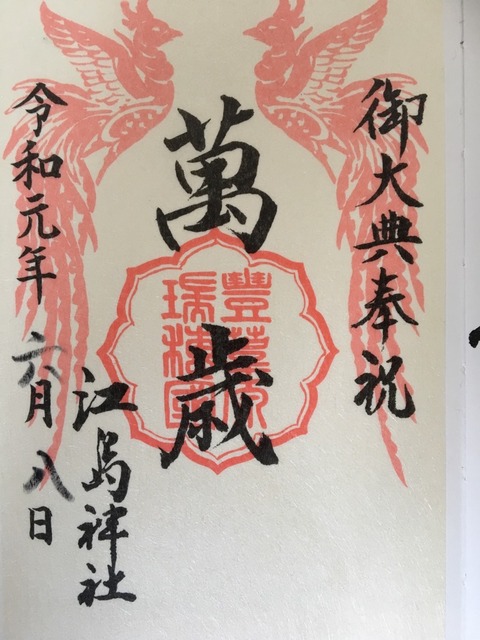 御大典奉祝
萬歳
豐葦原
瑞穂國
江島神社
令和元年六月八日